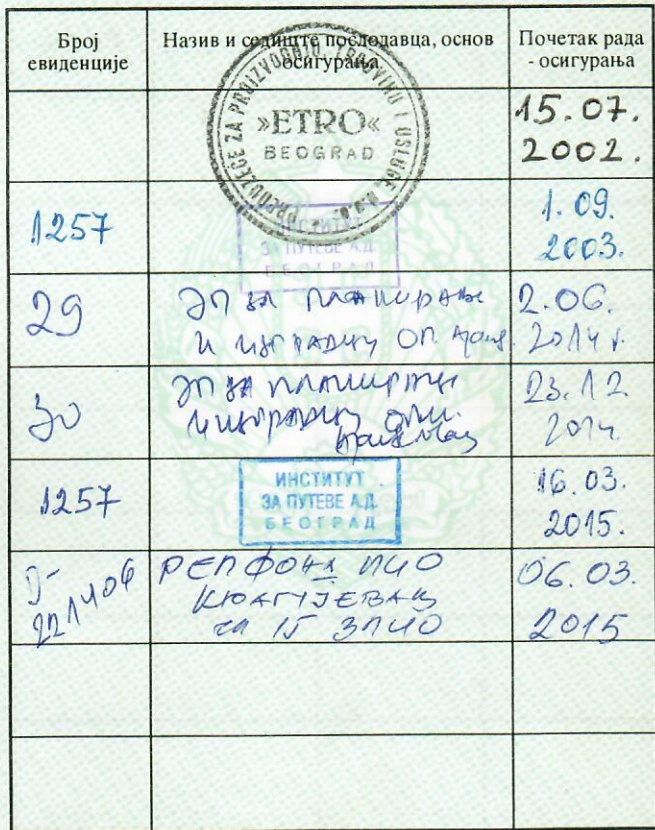 Број
евиденције
Назив и седиште послодавца, основ
осигурања
Почетак рада
- осигурања
PREDUZEĆE ZA PROIZVODNJU, TRGOVINU I USLUGE d.o.o.
»ETRO«
BEOGRAD
15.07.
2002.
1257
ИНСТИТУТ
ЗА ПУТЕВЕ А.Д.
БЕОГРАД
1.09.
2003.
29
ЈП за планирање
и изградњу оп.
2.06.
2014 г.
30
ЈП за планирање
и изградњу
23.12
2014.
1257
ИНСТИТУТ
ЗА ПУТЕВЕ А.Д.
БЕОГРАД
16.03.
2015.
221406
РЕПФОНД ПИО
КРАГУЈЕВАЦ
15 ЗПИО
06.03.
2015